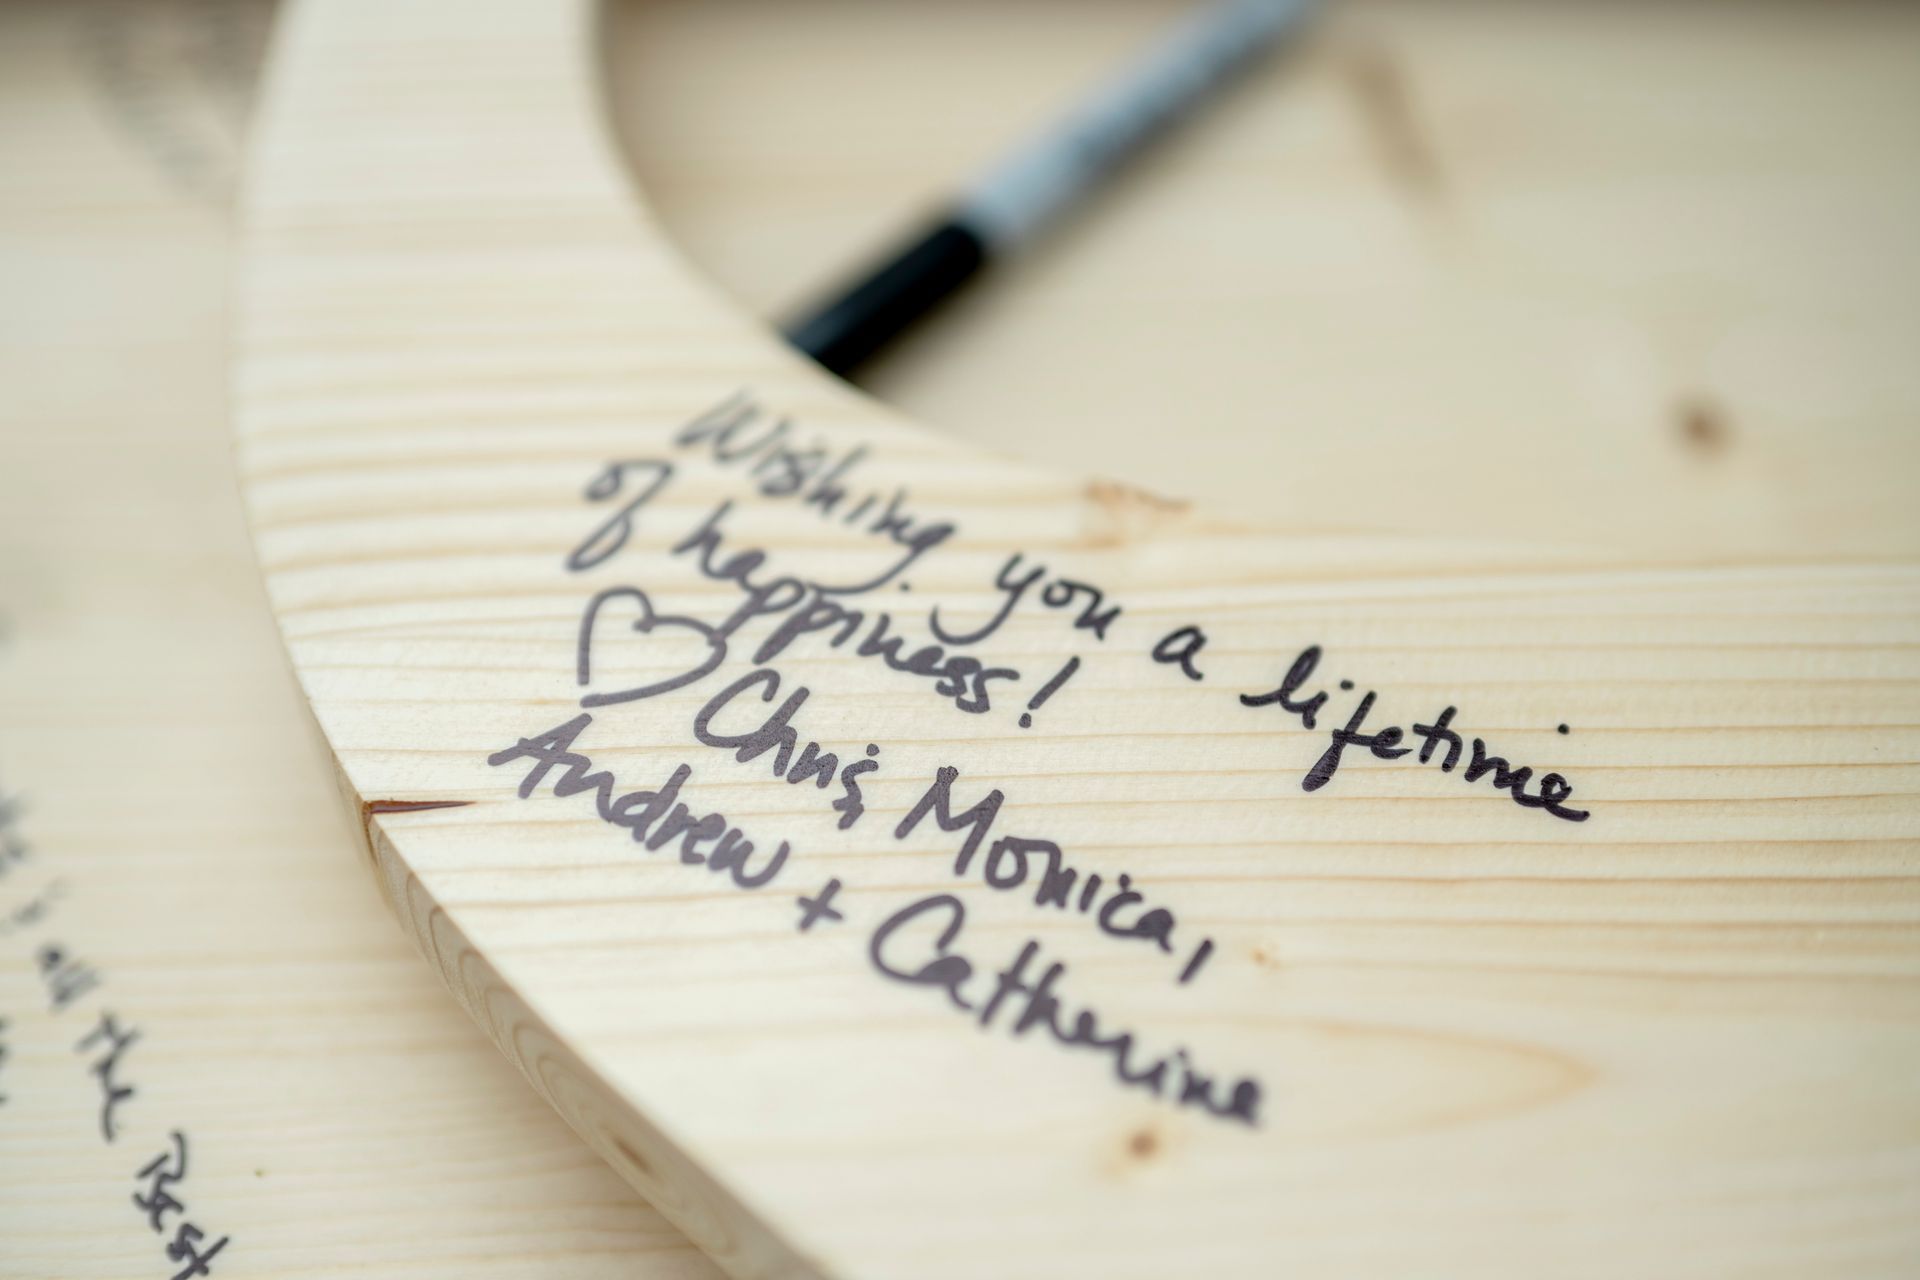 Wishing you a lifetime
of happiness!
♡ Chris, Monica,
Andrew + Catherine
all the Best